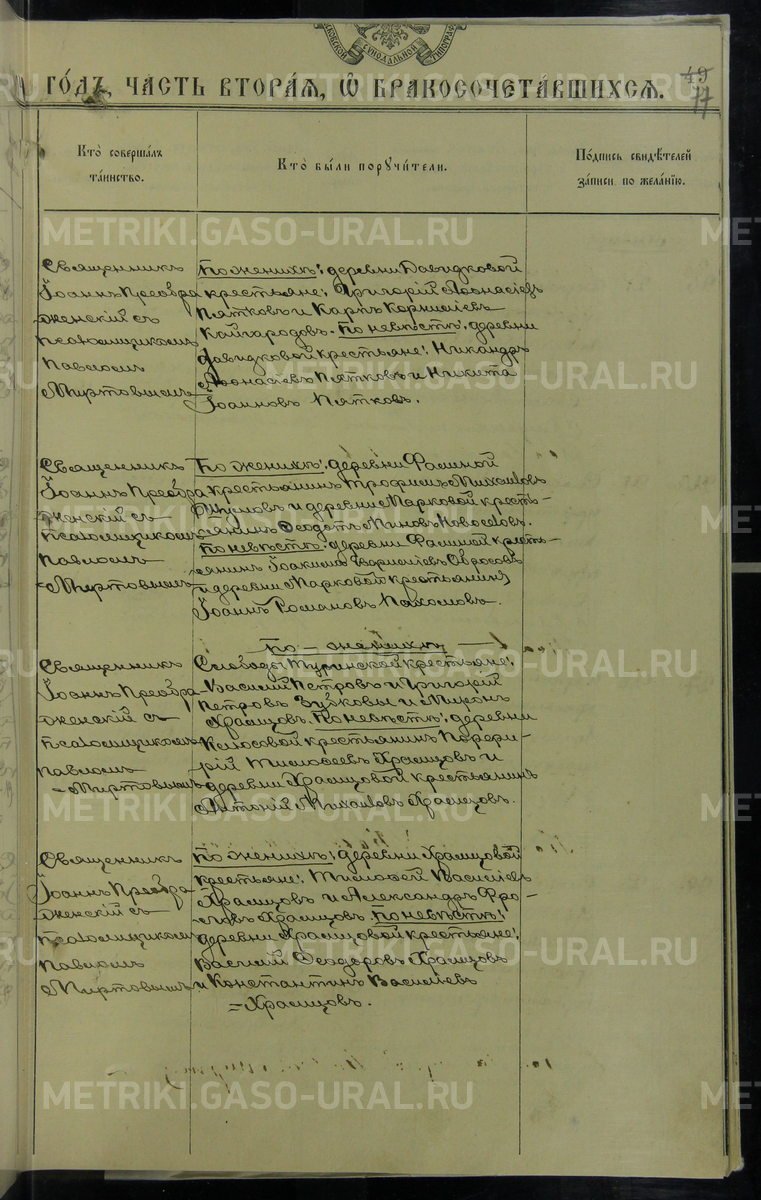 МОСКОВСКОЙ СѴНОДАЛЬНОЙ ТИПОГРАФ
49
77
ГО́ДЪ, ЧА́СТЬ ВТОРА́Ѧ, Ѡ҆ БРАКОСОЧЕТА́ВШИХСѦ.
Кто̀ соверша́лъ
та́инство.
Кто̀ бы́ли порꙋчи́тели.
По́дпись свидѣ́телей
за́писи по жела́нїю.
Священникъ
Іоаннъ Преобра
женскій съ
псаломщикомъ
Павломъ
Миртовымъ
По женихѣ: деревни Давидковой
крестьяне: Григорій Аѳонасіевъ
Пятковъ и Карпъ Корниліевъ
Кайгородовъ. По невѣстѣ: деревни
Давидковой крестьяне: Никандръ
Аѳонасіевъ Пятковъ и Никита
Іоанновъ Пятковъ.
Священникъ
Іоаннъ Преобра
женскій съ
псаломщикомъ
Павломъ
Миртовымъ
По женихѣ: деревни Фаминой
крестьянинъ Трофимъ Михаиловъ
и деревни Марковой кресть-
янинъ Ѳеодотъ Миновъ Новоселовъ.
По невѣстѣ: деревни Фаминой кресть-
янинъ Іоакимъ
и деревни Марковой крестьянинъ
Іоаннъ Романовъ Пахомовъ.
Священникъ
Іоаннъ Преобра-
женскій съ
псаломщикомъ
Павломъ
Миртовымъ
По женихѣ
Слободы Туринской крестьяне:
Василій Петровъ и Григорій
Петровъ Зуевы и Миронъ
Храмцовъ. По невѣстѣ: деревни
Колосовой крестьянинъ Порфи-
рій Тимофеевъ Храмцовъ и
деревни Храмцовой крестьянинъ
Антоній Михаиловъ Храмцовъ.
Священникъ
Іоаннъ Преобра
женскій съ
псаломщикомъ
Павломъ
Миртовымъ
По женихѣ: деревни Храмцовой
крестьяне: Тимофей Василіевъ
Храмцовъ и Александръ Фро-
ловъ Храмцовъ. По невѣстѣ:
деревни Храмцовой крестьяне:
Василій Ѳеодоровъ Храмцовъ
и Константинъ Василіевъ
Храмцовъ.
METRIKI.GASO-URAL.RU